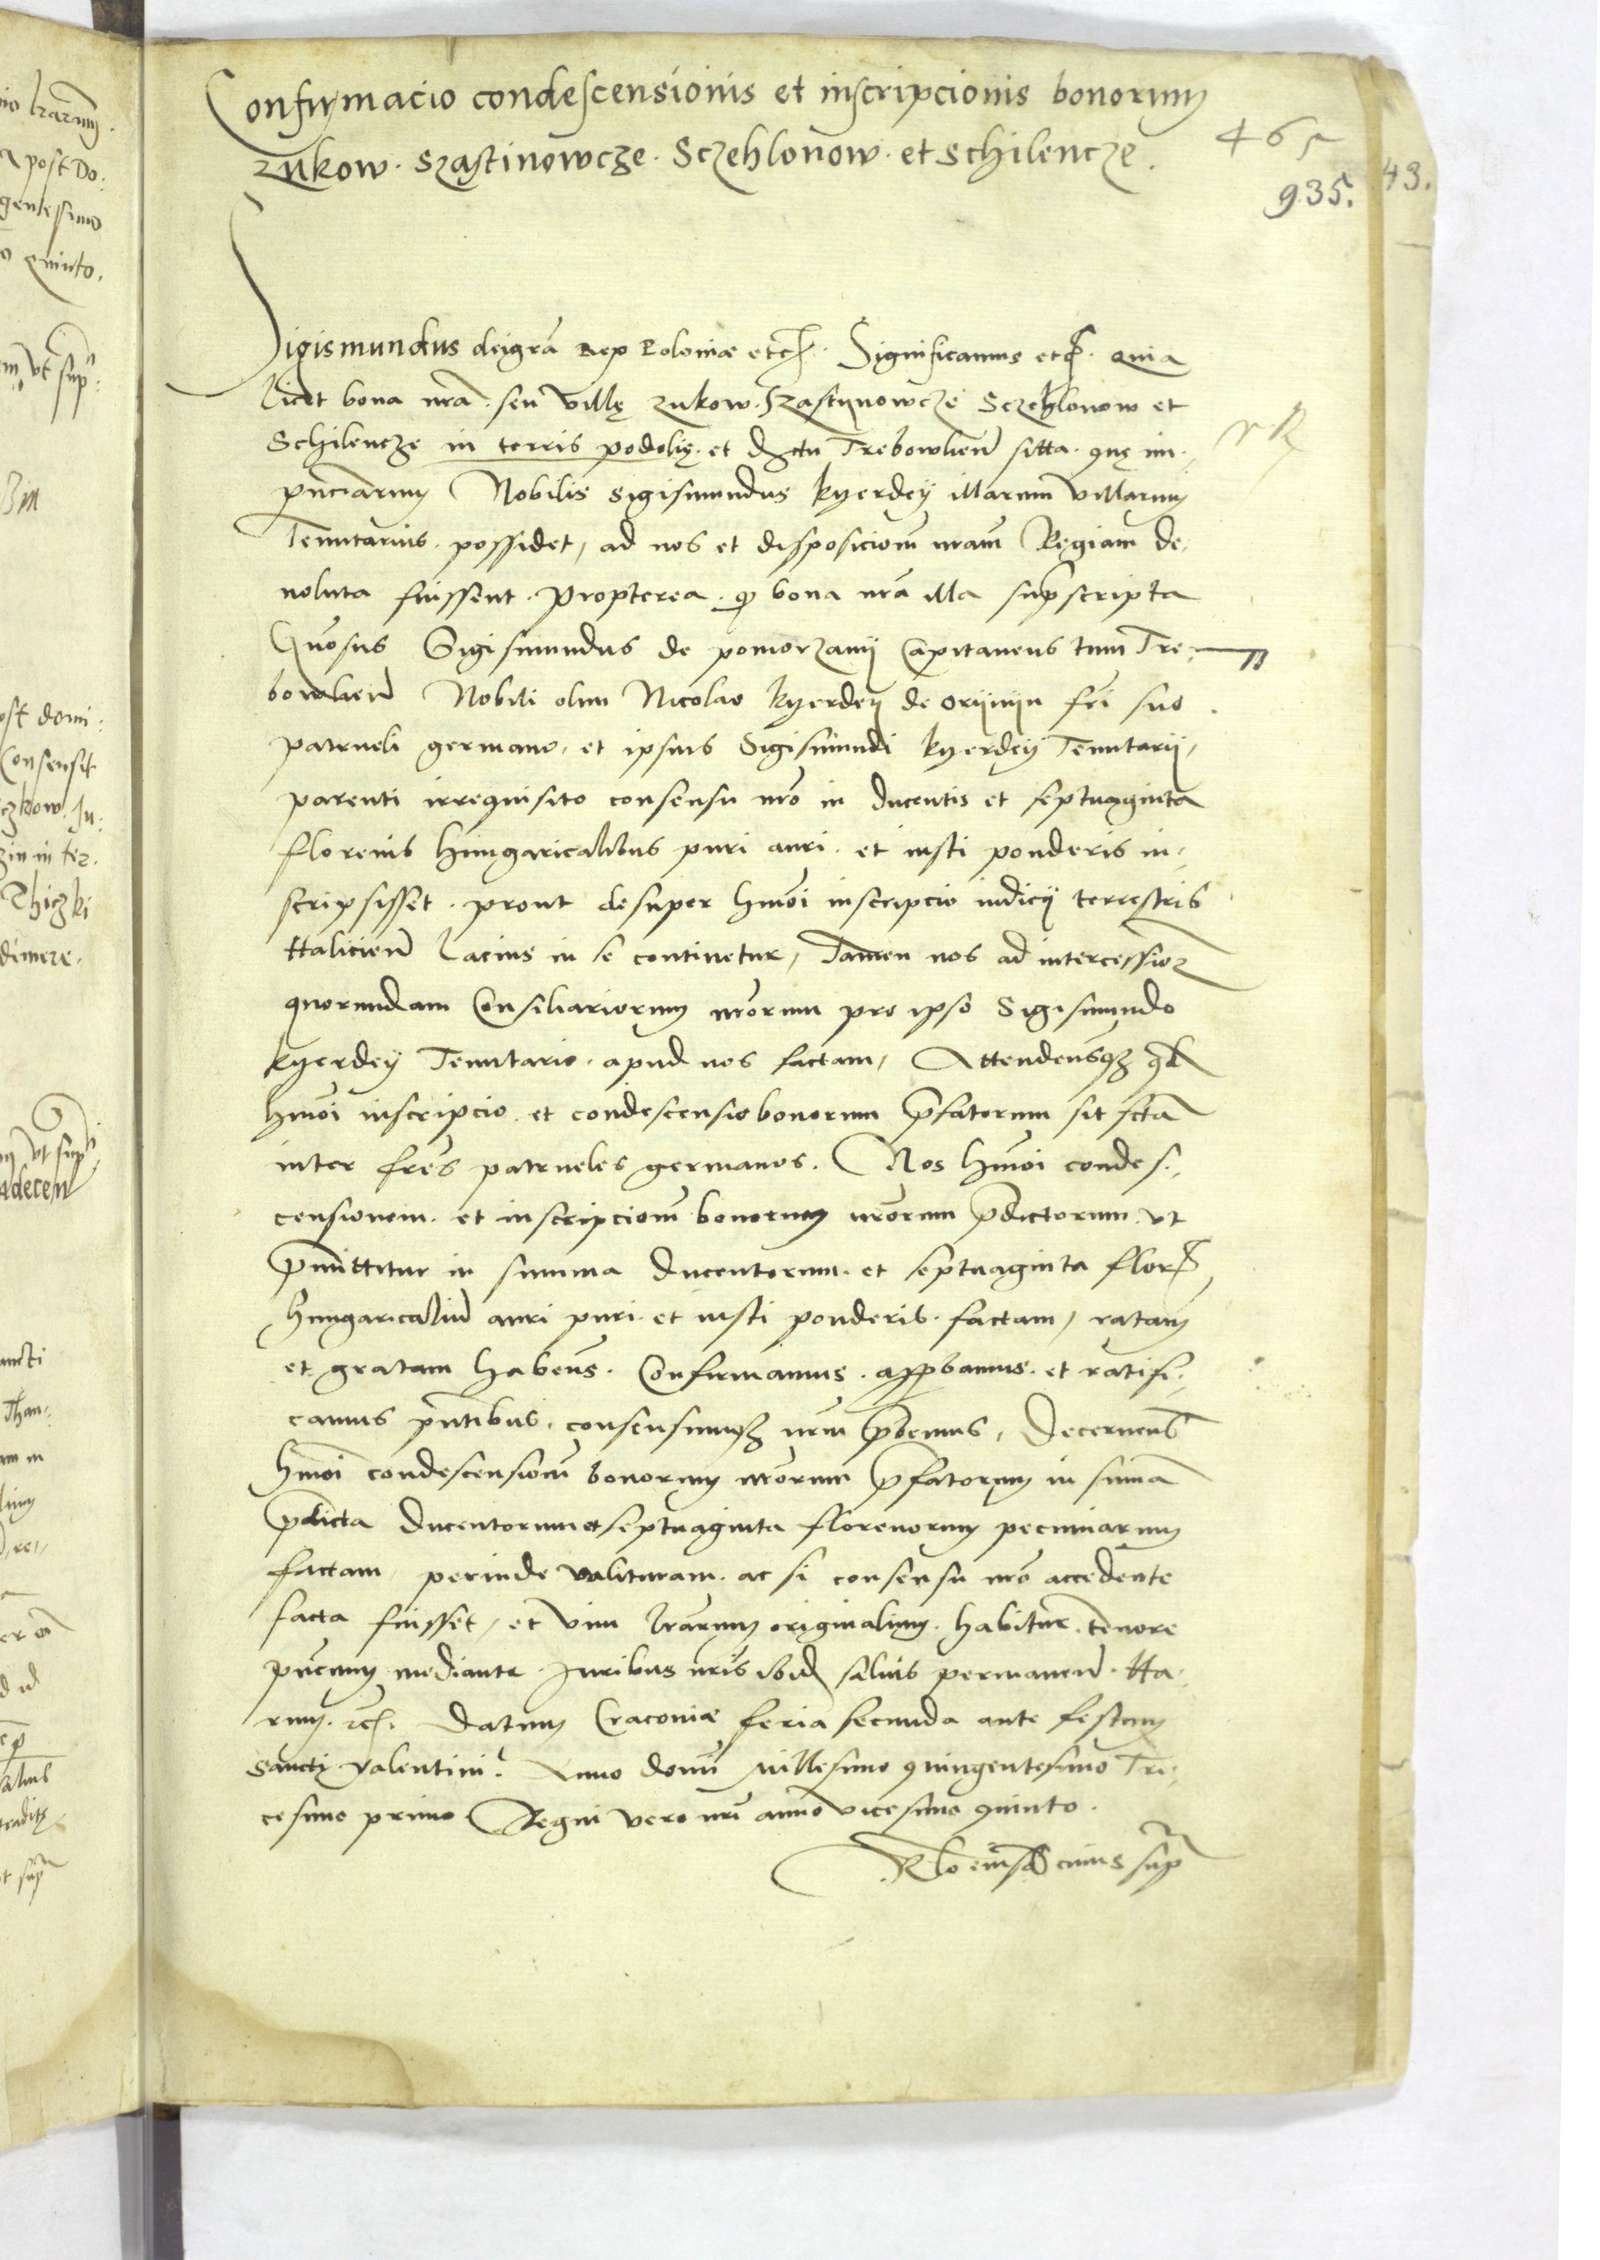 Confirmacio condescensionis et inscripcionis bonorum
zukow. Szastinowcze. Sczehlonow. et Schilencze.
465
935.
43.
Sigismundus dei gra Rex Poloniæ etc. Significamus etc. Quia
licet bona nra. seu villę zukow. Szastynowcze Sczehlonow et
Schilencze in terris podolię. et dctu Trebowlien sitta. quę in
pnciarum Nobilis Sigismundus kyerdeÿ illarum villarum
Tenutarius. possidet, ad nos et disposiciom nram Regiam de-
uoluta fuissent. Propterea. q bona nra illa suprascripta
Gnosus Sigismundus de pomorzany Capitaneus tum Tre-
bowlien Nobili olim Nicolao kyerdeÿ de orÿnÿn fri suo
patrueli germano, et ipsius Sigismundi kyerdeÿ Tenutarÿ,
parenti irrequisito consensu nro in Ducentis et septuaginta
florenis hungaricalibus puri auri. et iusti ponderis in-
scripsisset. prout desuper hmoi inscripcio iudicÿ terrestris
Halicien lacius in se continetur, Tamen nos ad intercession
quorundam Consiliariorum nrorum pro ipso Sigismundo
kyerdeÿ Tenutario. apud nos factam, Attendensq qd
hmoi inscripcio. et condescensio bonorum pfatorum sit fcta
inter fres patrueles germanos. Nos hmoi condes-
censionem. et inscripciom bonorum nrorum pdictorum. vt
pmittitur in summa Ducentorum. et septuaginta flor
hungaricaliu auri puri. et iusti ponderis. factam, ratam
et gratam habens. Confirmamus. approbamus. et ratifi-
camus pntibus. consensumq nrm pbemus, Decernens
hmoi condescensiom bonorum nrorum pfatorum in suma
pdicta Ducentorum et septuaginta florenorum pecuniarum
factam, perinde valituram. ac si consensu nro accedente
facta fuisset, et vim lrarum originalium. habitur. tenore
pncium mediante. Iuribus nris ibid saluis permanen. Ha-
rum. etc. Datum Cracoviæ feria secunda ante festum
Sancti Valentini. Anno domi Millesimo quingentesimo Tri-
cesimo primo Regni vero nri anno vicesimo quinto.
Rlo eiusd cuius supra